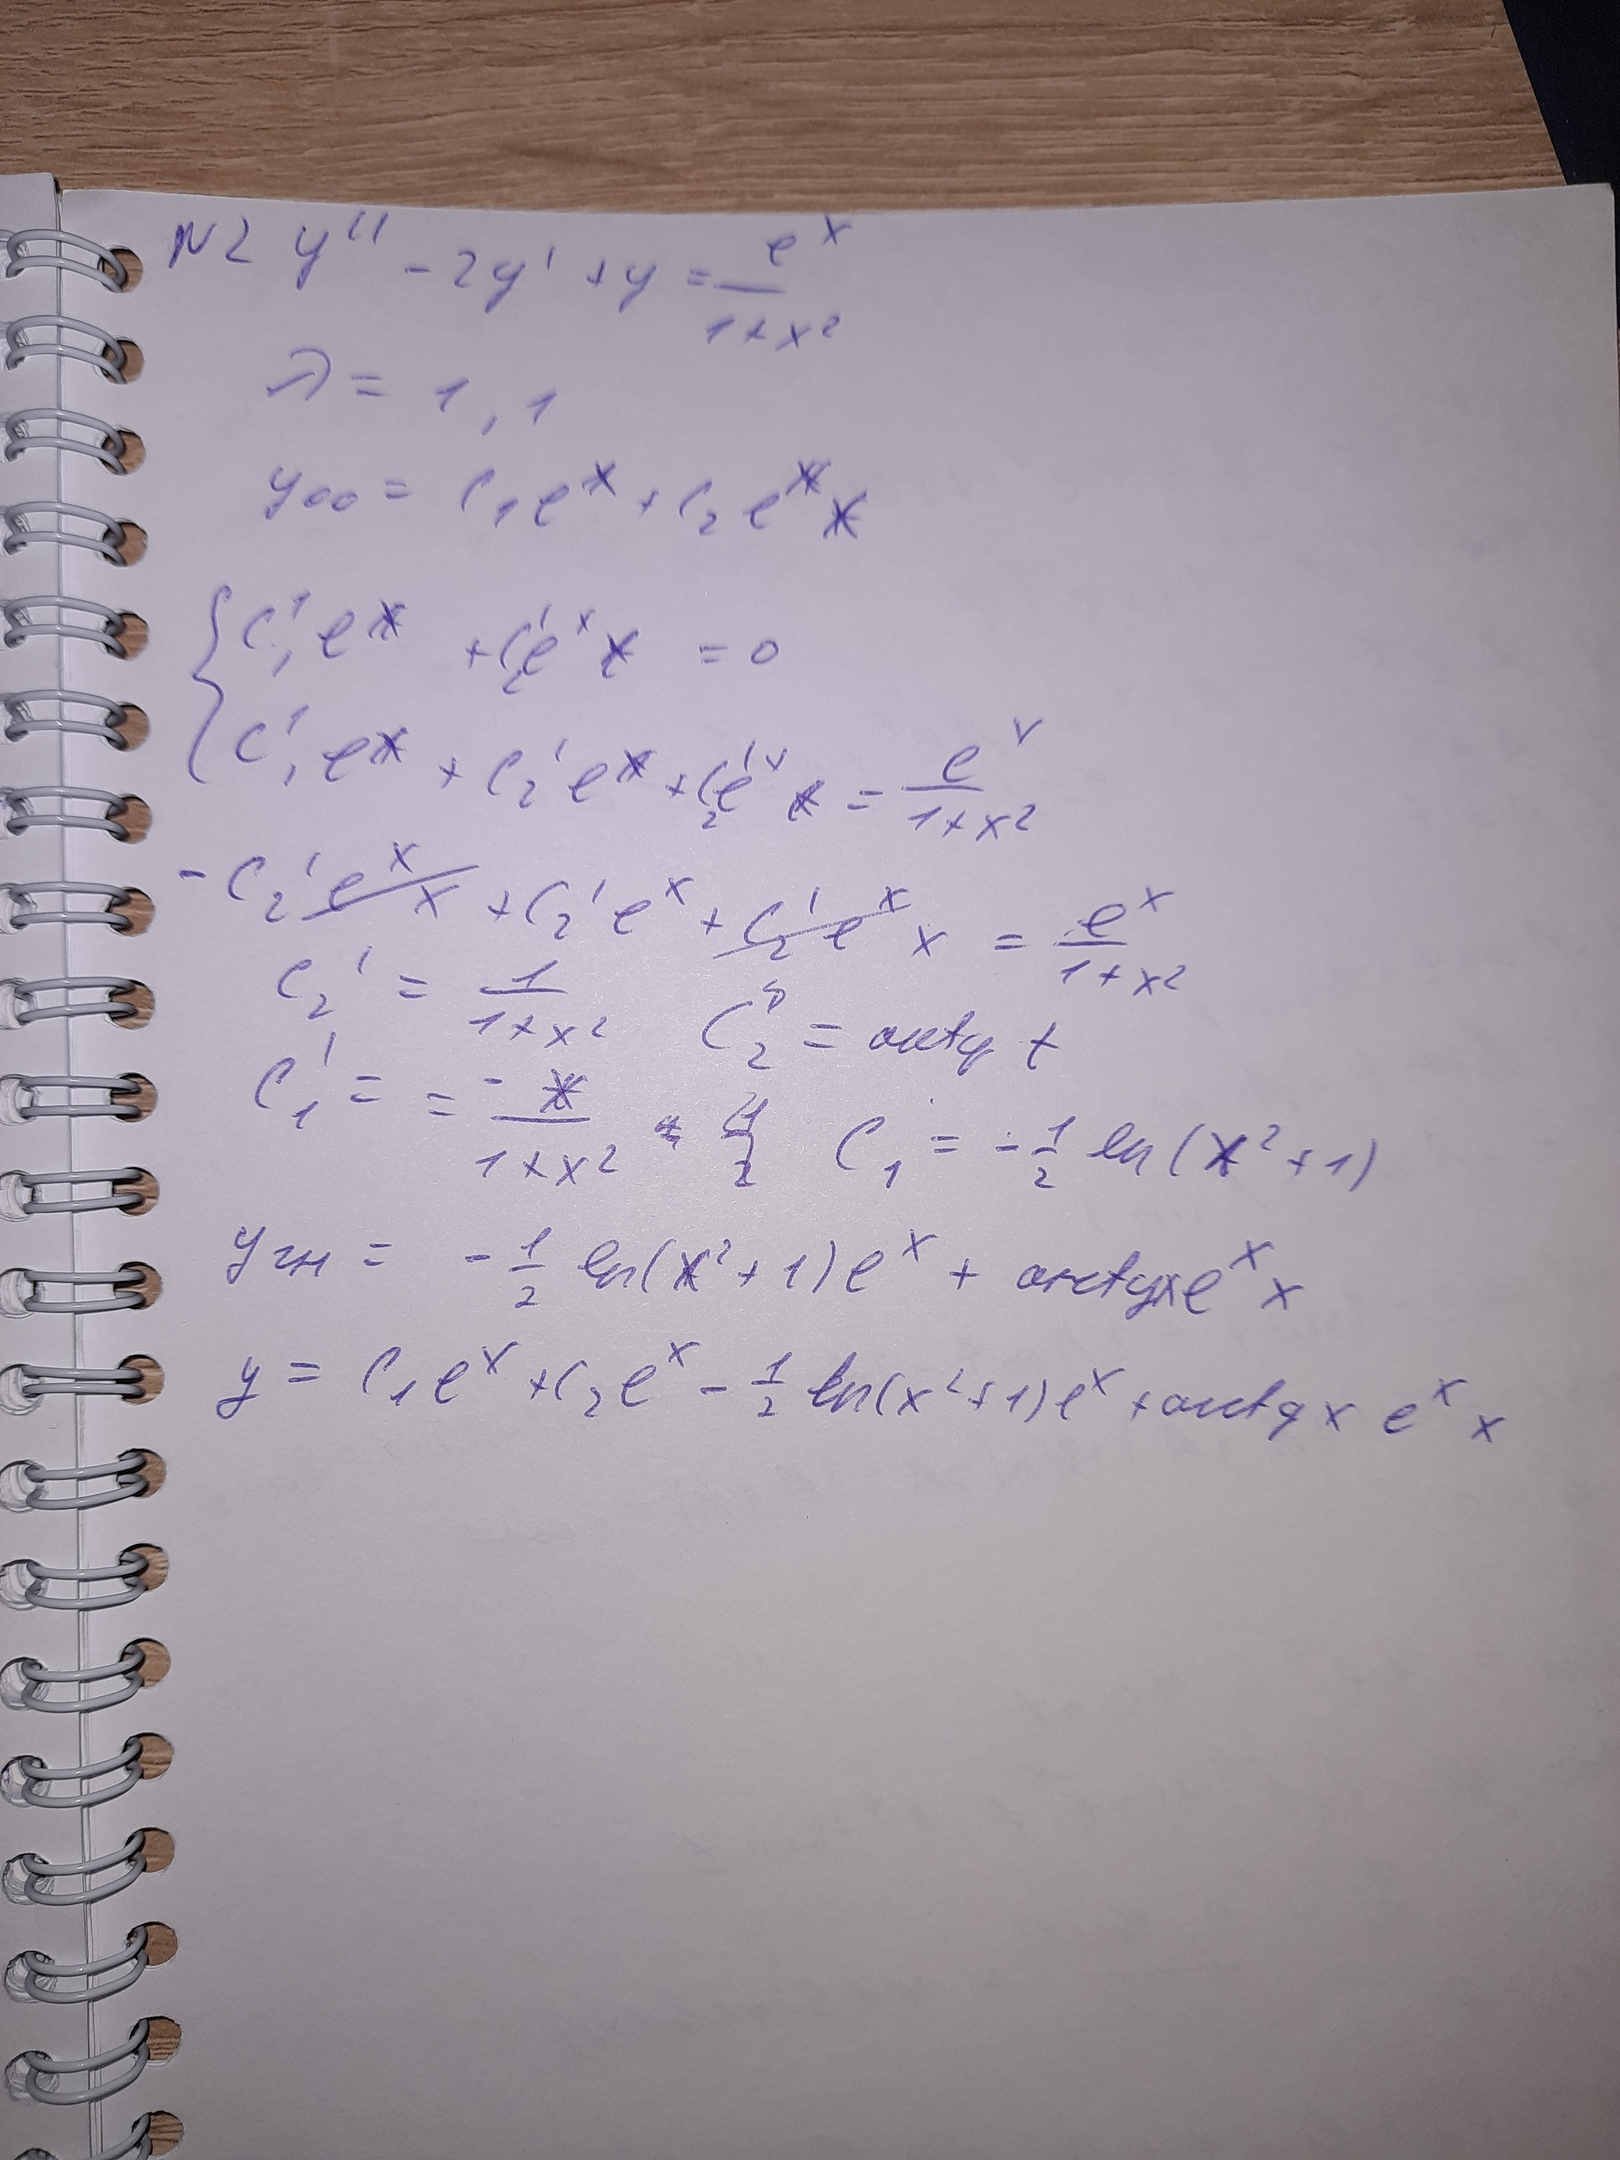 N2 y'' - 2y' + y = e^x / (1+x²)
λ = 1, 1
y₀₀ = C₁e^x + C₂e^x x
{ C₁'e^x + C₂'e^x x = 0
C₁'e^x + C₂'e^x + C₂'e^x x = e^x / (1+x²)
- C₂'e^x x + C₂'e^x + C₂'e^x x = e^x / (1+x²)
C₂' = 1 / (1+x²) C₂ = arctg t
C₁' = = -x / (1+x²) C₁ = -1/2 ln(x²+1)
yчн = -1/2 ln(x²+1)e^x + arctgx e^x x
y = C₁e^x + C₂e^x - 1/2 ln(x²+1)e^x + arctg x e^x x